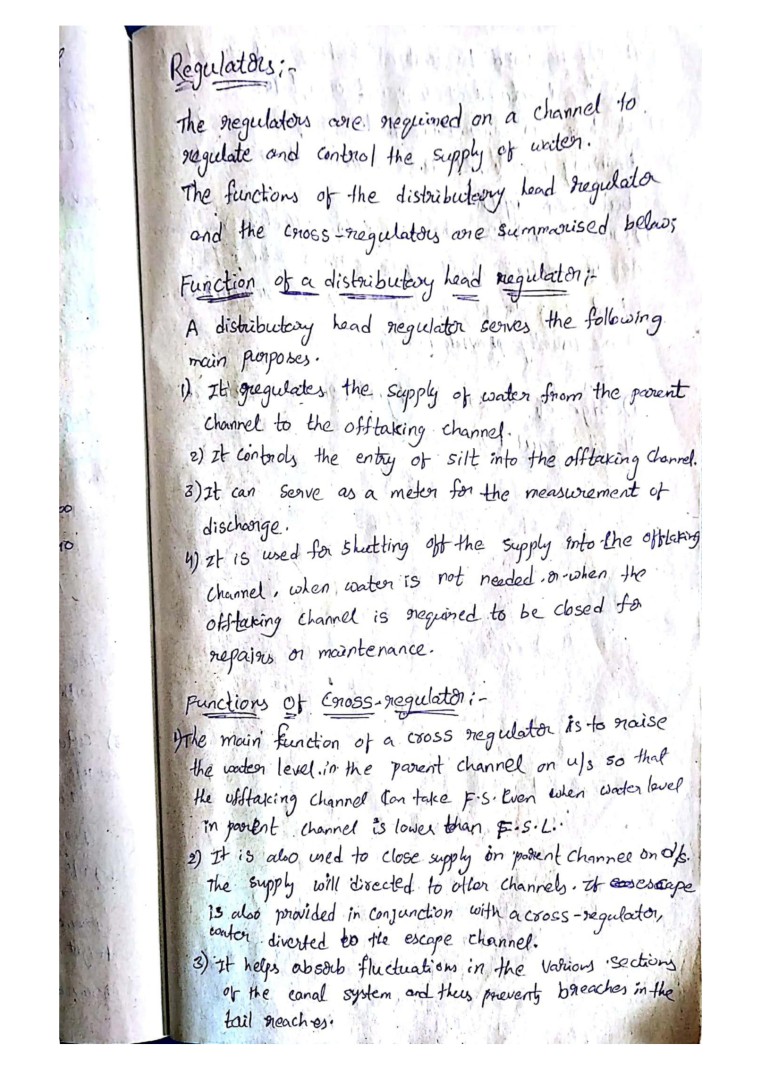 Regulators:-
The regulators are required on a channel to
regulate and control the supply of water.
The functions of the distributary head regulator
and the cross-regulators are summarised below;
Function of a distributary head regulator:-
A distributary head regulator serves the following
main purposes.
1) It regulates the supply of water from the parent
channel to the offtaking channel.
2) It controls the entry of silt into the offtaking channel.
3) It can serve as a meter for the measurement of
discharge.
4) It is used for shutting off the supply into the offtaking
channel, when water is not needed or when the
offtaking channel is required to be closed for
repairs or maintenance.
Functions of Cross-regulator:-
1) The main function of a cross regulator is to raise
the water level in the parent channel on u/s so that
the offtaking channel can take F.S. Even when water level
in parent channel is lower than F.S.L.
2) It is also used to close supply in parent channel on d/s.
The supply will directed to other channels. If escape
is also provided in conjunction with a cross-regulator,
water diverted to the escape channel.
3) It helps absorb fluctuations in the various sections
of the canal system, and thus prevents breaches in the
tail reaches.